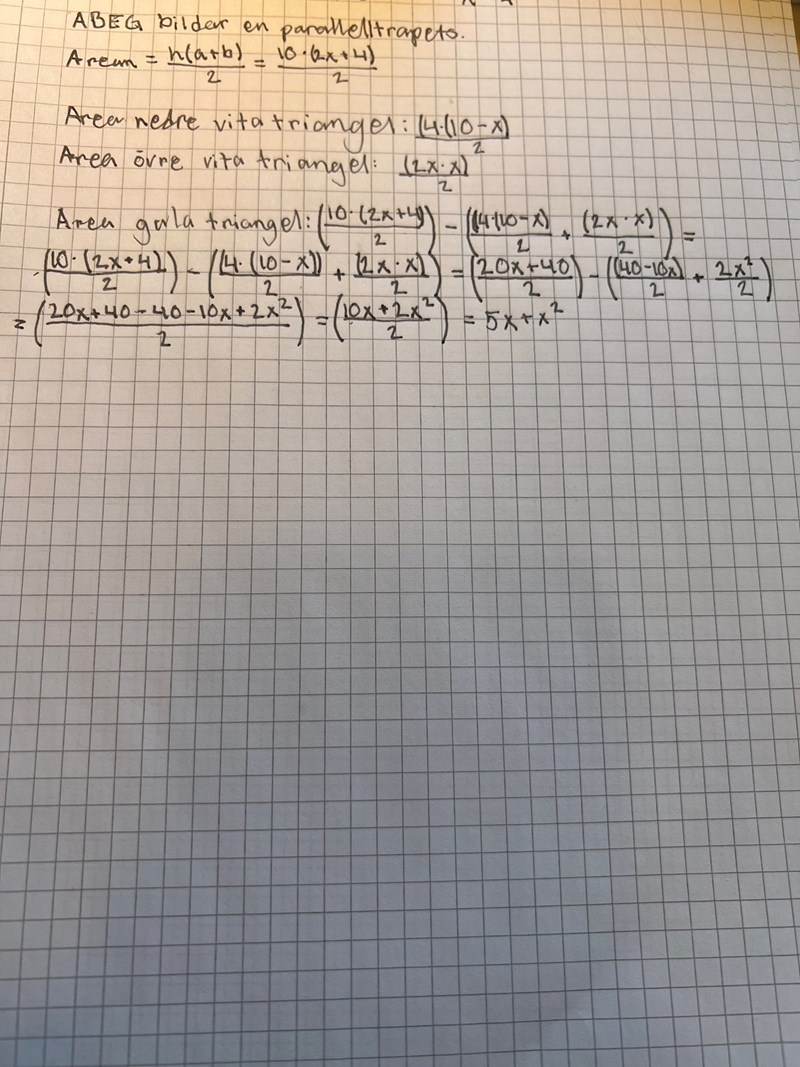 ABEG bildar en parallelltrapets.
Arean = h(a+b)/2 = 10·(2x+4)/2
Area nedre vita triangel: (4·(10-x)/2
Area övre vita triangel: (2x·x)/2
Area gula triangel: (10·(2x+4))/2 - ((4·(10-x)/2 + (2x·x)/2) =
(10·(2x+4)/2) - ((4·(10-x))/2 + (2x·x)/2) = (20x+40)/2) - ((40-10x)/2 + 2x²/2)
= (20x+40-40-10x+2x²)/2) = (10x+2x²/2) = 5x+x²